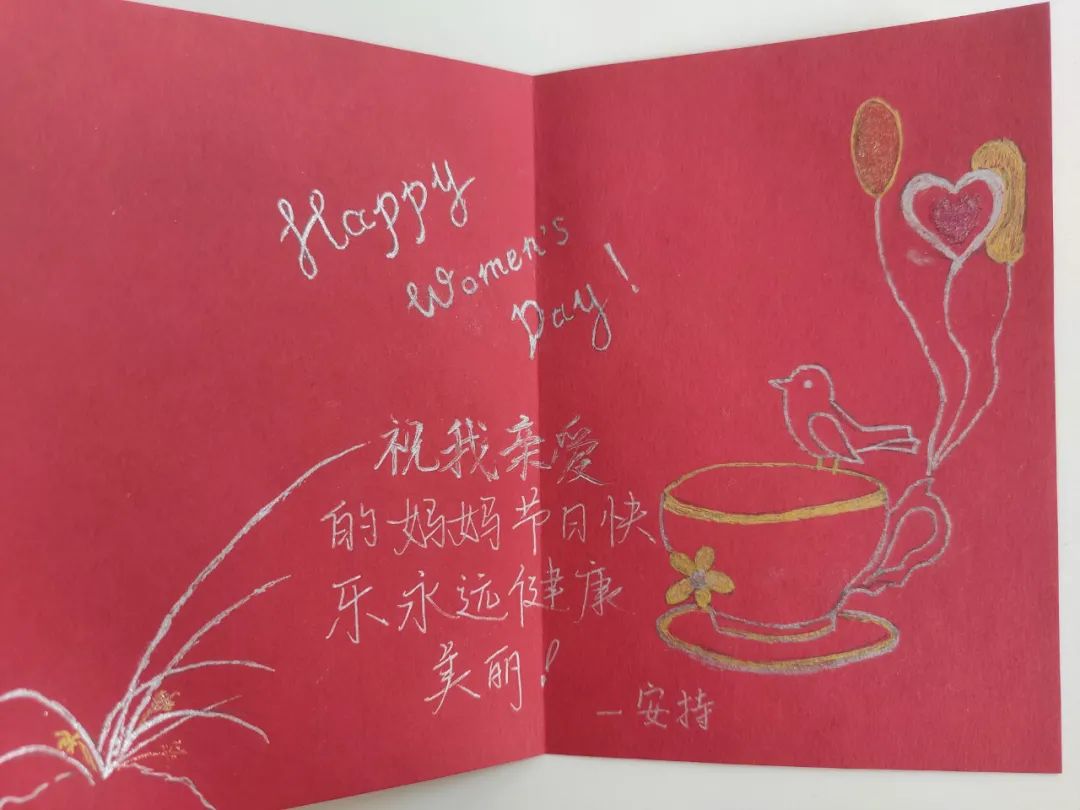 Happy
Women's
Day!
祝我亲爱
的妈妈节日快
乐永远健康
美丽!
—安持